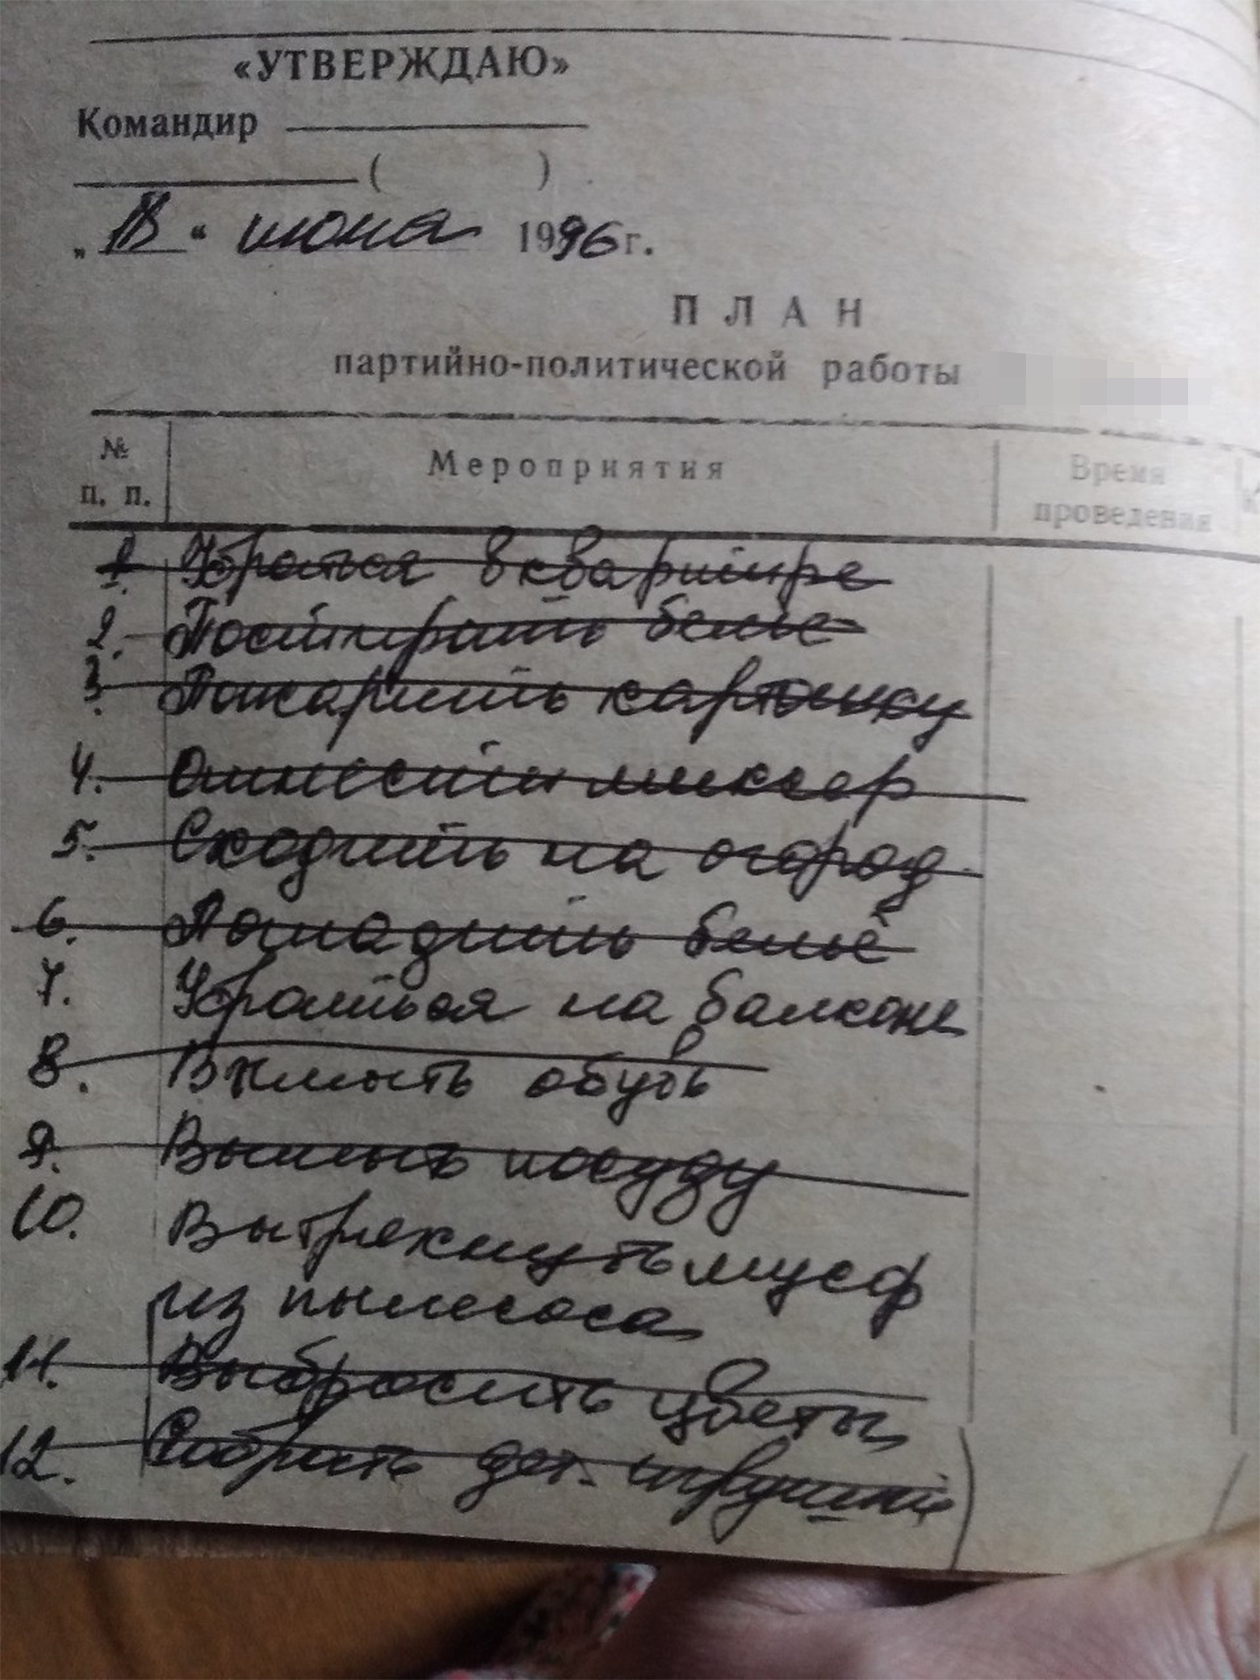 «УТВЕРЖДАЮ»
Командир
( )
„18“ июня 1996 г.
ПЛАН
партийно-политической работы
№ п. п. Мероприятия Время проведения
1. Убраться в квартире
2. Постирать белье
3. Пожарить картошку
4. Отнести миксер
5. Сходить на огород
6. Погладить бельё
7. Убраться на балконе
8. Вымыть обувь
9. Вымыть посуду
10. Вытряхнуть мусор
из пылесоса
11. Выбросить цветы
12. Собрать дет. игрушки